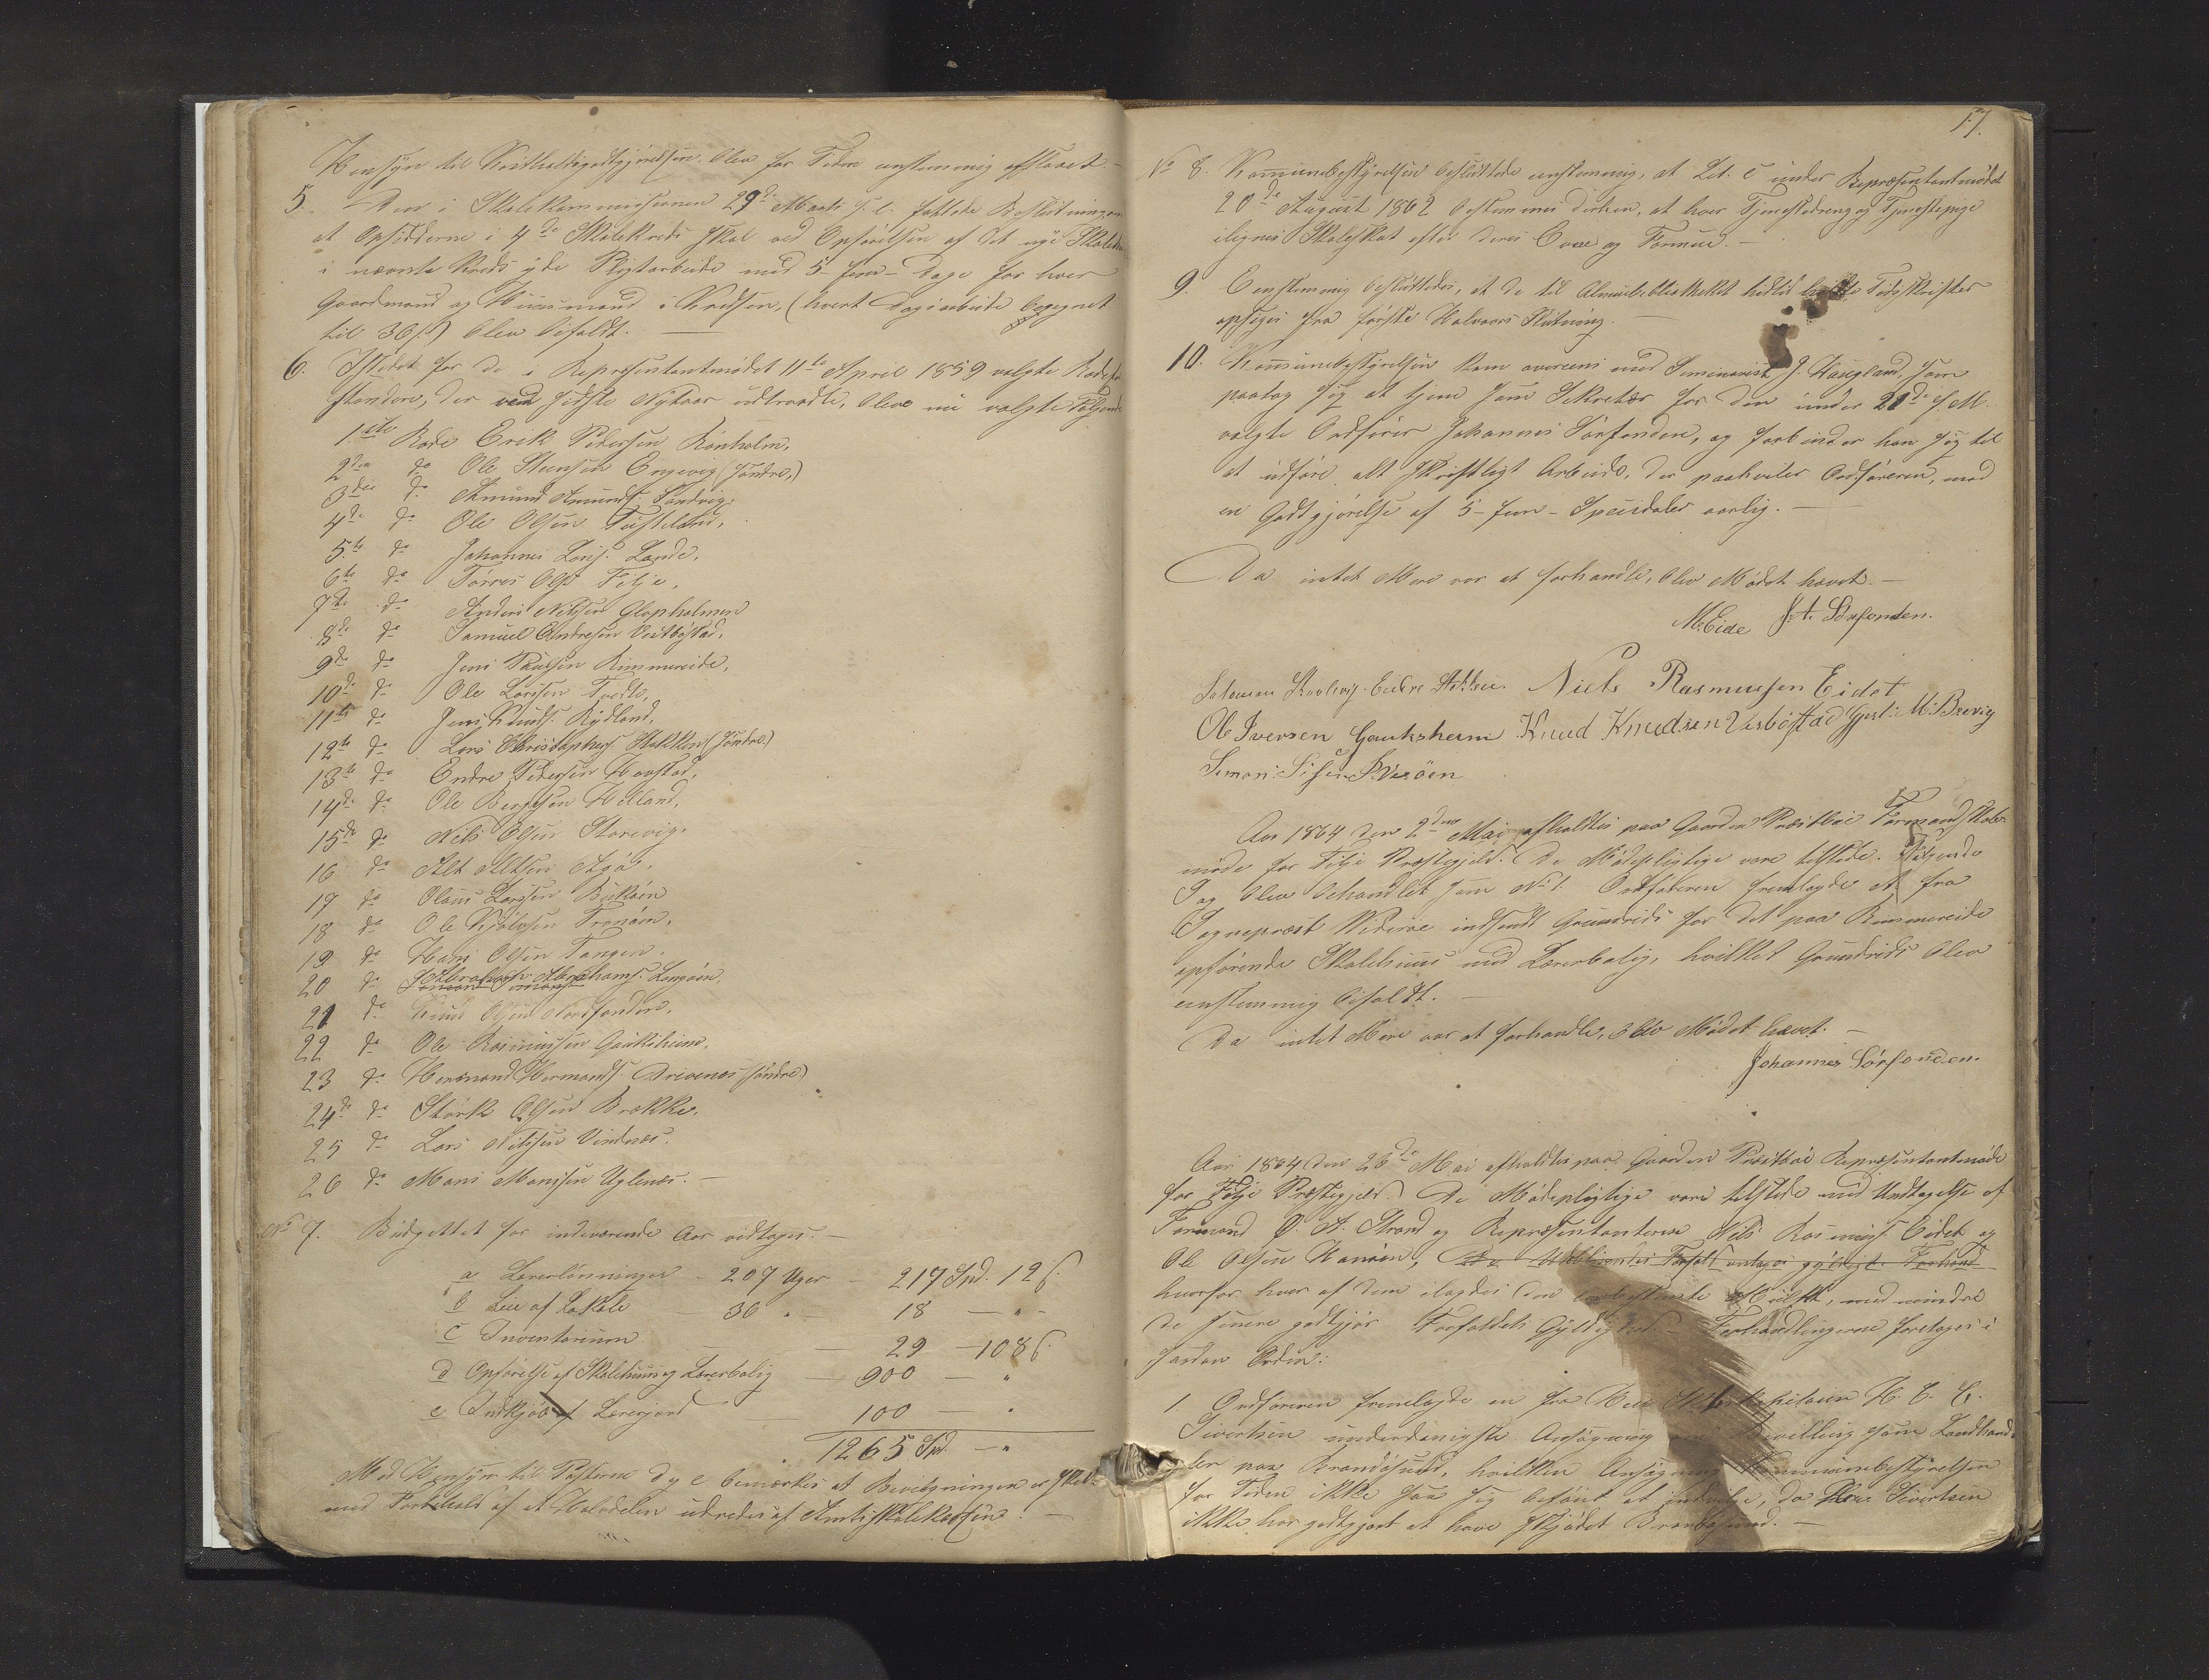 Hensyn til Kostholdsgodtgjørelsen blev for Tiden enstemmig afslaaet. –
5. Den i Skolekommissionen 29de Marts s. l. fattede Beslutning om
at Opsidderne i 4de Skolekreds skal ved Opførelsen af det nye Skolehus
i nævnte Kreds yde Pligtarbeide med 5 – fem – Dage for hver
Gaardmand og Huusmand i Kredsen, (hvert Dagsarbeide beregnet
til 36 s) blev bifaldt. –
6. Istedet for de i Repræsentantmødet 11te April 1859 valgte Rodefor-
standere, der ved sidste Nytaar udtraadte, bleve nu valgte Følgende
1ste Rode Erik Petersen Rønholm,
2den do Ole Steensen Engevig (søndre,)
3die do Amund Amunds. Sandvig.
4de do Ole Olsen Teisteland,
5te do Johannes Lars. Lande,
6te do Tørres Ols. Fitje,
7de do Anders Nilssen Glopholmen
8de do Samuel Andresen Vestbøstad,
9de do Jens Paulsen Rimmereide,
10de do Ole Larssen Tvedte,
11te do Jens Knuds. Rydland,
12te do Lars Christophers. Stokken (søndre)
13de do Endre Petersen Havstad,
14de do Ole Bergesen Helland,
15de do Nils Olsen Storevig.
16 do Alt Altsen Agø,
17 do Olaus Larssen Buskøen
18 do Ole Kjølvsen Tranøen,
19 do Hans Olsen Tangen,
20 do Abraham Abrahams. Langøen,
21 do Knud Olsen Nordfonden,
22 do Ole Rasmussen Gauksheim,
23 do Hermand Hermands. Drivenes (søndre)
24de do Størk Olsen Brække,
25 do Lars Nilssen Vindnes.
26 do Mons Monssen Uglenes. –
No 7. Budgettet for indeværende Aar vedtoges. –
a Lærerlønninger – 207 Uger – 217 Spd. 12 s.
b Leie af Lokale – 36 " – 18 – " –
c Inventarium – 29 – 108 s.
d Opførelse af Skolehuus og Lærerbolig – 900 – "
e Indkjøb af Lærerjord – 100 – "
1265 Spd. – "
Med Hensyn til Posterne d og e bemærkes at Bevilgningen er skeet
med Forbehold af at Halvdelen udredes af Amtsskolekassen. –
17.
No 8. Kommunebestyrelsen besluttede enstemmig, at Lit. c under Repræsentantmødet
20de August 1862 bestemmes derhen, at hver Tjenestedreng og Tjenestepige
ilignes Skoleskat efter deres Evne og Formue. –
9. Enstemmig besluttedes, at de til Almuebibliotheket hidtil holdte Tidsskrifter
opsiges fra første Halvaars Slutning. –
10. Kommunebestyrelsen kom overeens med Seminarist J. Haugland, som
paatog sig at tjene som Sekretær for den under 21de s. M.
valgte Ordfører Johannes Sørfonden, og forbinder han sig til
at udføre alt skriftligt Arbeide, der paahviler Ordføreren, mod
en Godtgjørelse af 5 – fem – Speciedaler aarlig. –
Da intet Mere var at forhandle, blev Mødet hævet. –
M. Eide J. A. Sørfonden.
Endre Stokken. Niels Rasmussen Eidet
Ol Iversen Gauksheim Knud Knudsen Vesbøstad Gjert M: Brevig
Simon
Aar 1864 den 2den Mai afholdtes paa Gaarden Præstbø Formandskabs-
møde for Fitje Præstegjeld. De Mødepligtige vare tilstede. Følgende
Sag blev behandlet som No 1. Ordføreren fremlagde et fra
Sogneprest Widerøe indsendt Grundrids for det paa Rimmereide
opførende Skolehuus med Lærerbolig, hvilket Grundrids blev
enstemmig bifaldt. –
Da intet Mere var at forhandle, blev Mødet hævet. –
Johannes Sørfonden.
Aar 1864 den 26de Mai afholdtes paa Gaarden Præstbø Repræsentantmøde
for Fitje Præstegjeld. De Mødepligtige vare tilstede med Undtagelse af
Formand O. A. Strand og Repræsentanterne Nils Rasmuss. Eidet og
Ole Olsen Hanøen, De Udeblivendes Forfald antoges gyldigt. Forhand
hvorfor hver af dem ilagdes den lovbestemte Mulkt, med mindre
de senere godtgjør Forfaldets Gyldighed. – Forhandlingerne foretoges i
saadan Orden:
1. Ordføreren fremlagde en fra Hr. H. C. C.
Sivertsen underdanigste Ansøgning om Bevilling som Landhand-
ler paa Brandøsund, hvilken Ansøgning Kommunebestyrelsen
for Tiden ikke saa sig beføiet at indvilge, da Herr Sivertsen
ikke har godtgjort at have skjødet Brandøsund. –